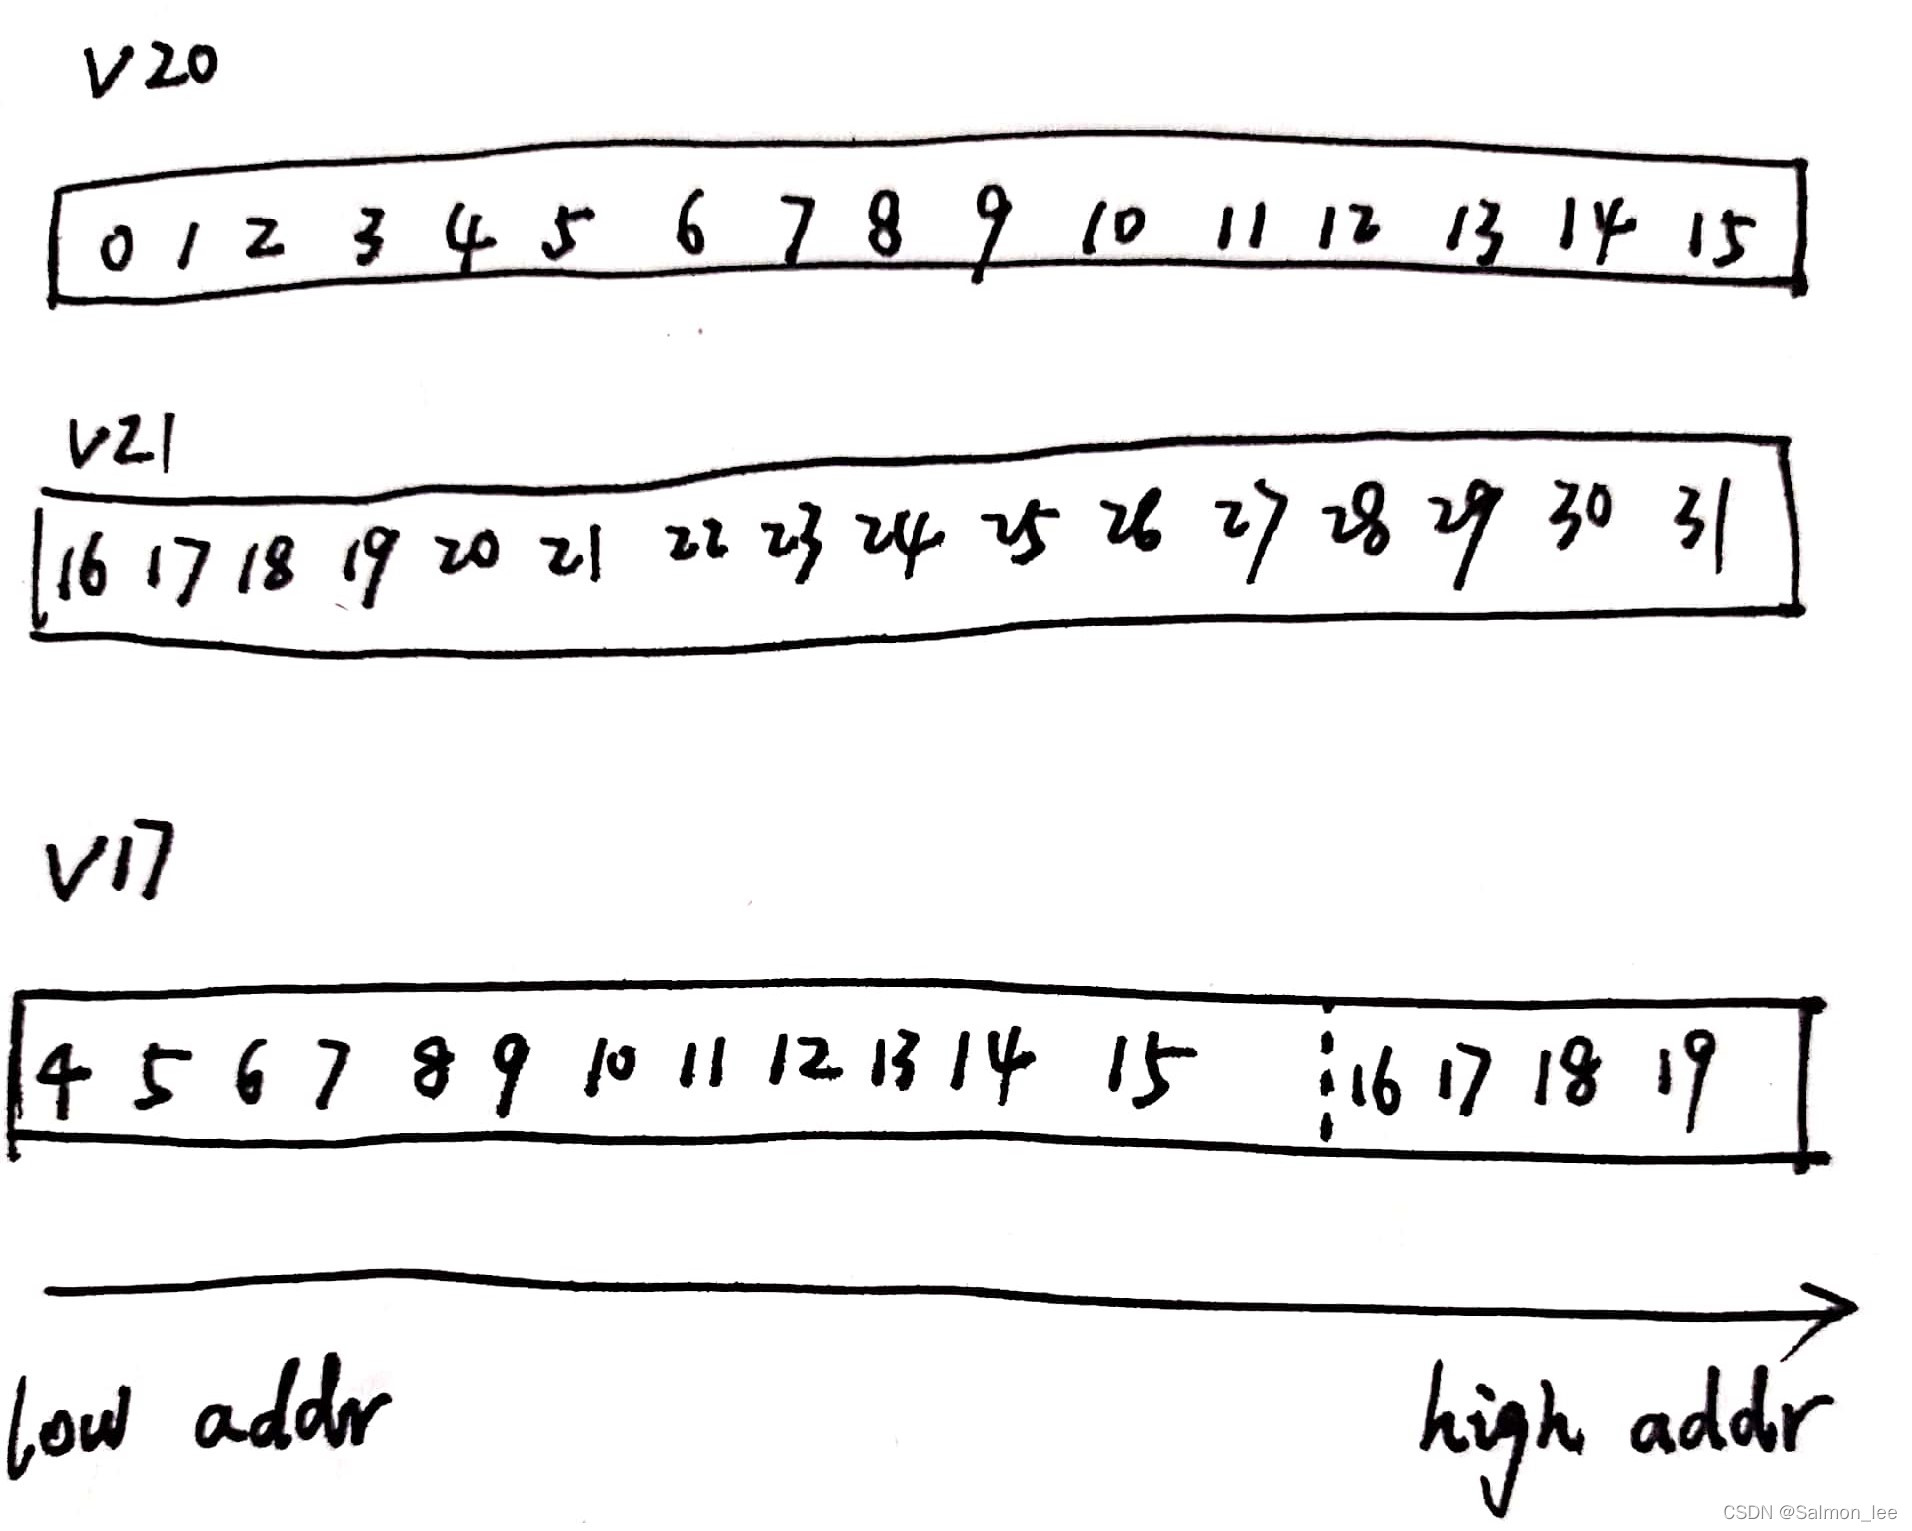 V20
0 1 2 3 4 5 6 7 8 9 10 11 12 13 14 15
V21
16 17 18 19 20 21 22 23 24 25 26 27 28 29 30 31
V17
4 5 6 7 8 9 10 11 12 13 14 15 16 17 18 19
low addr high addr
CSDN @Salmon_lee